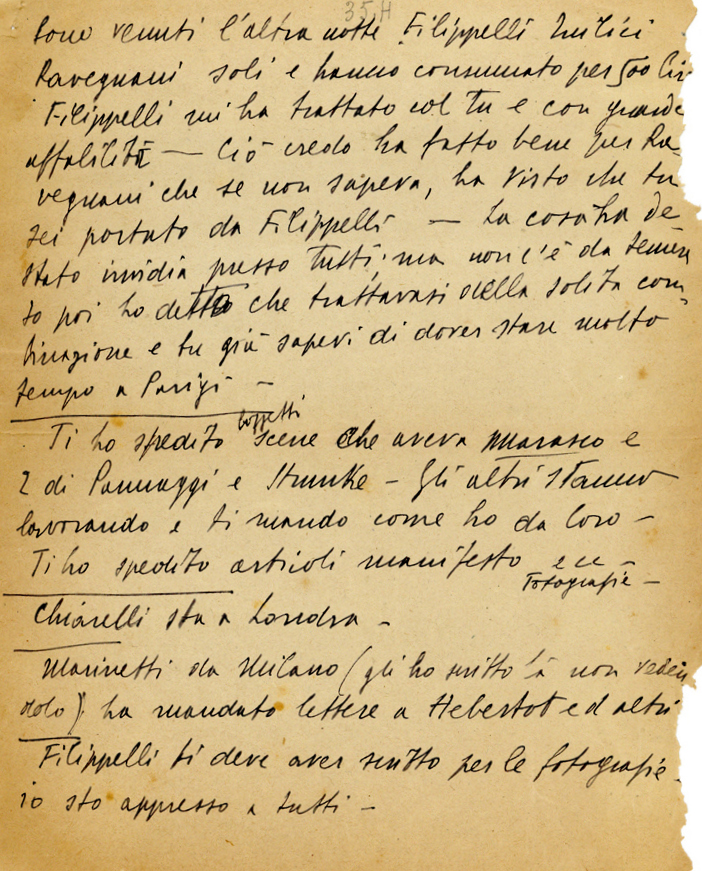 35 H
Sono venuti l'altra notte Filippelli Milici
Ravegnani soli e hanno consumato per 500 lir
Filippelli mi ha trattato col tu e con grande
affalilità — Ciò credo ha fatto bene per Ra-
vegnani che se non sapeva, ha visto che tu
sei portato da Filippelli — La cosa ha de
stato invidia presso tutti, ma non c'è da temere
Io poi ho detto che trattavasi della solita com-
binazione e tu già sapevi di dover stare molto
tempo a Parigi —
bozzetti
Ti ho spedito scene che aveva Marasco e
2 di Pannaggi e Stunke — Gli altri stanno
lavorando e ti mando come ho da loro —
Ti ho spedito articoli manifesto ecc —
Fotografie —
Chiarelli sta a Londra —
Marinetti da Milano (gli ho scritto là non veden
dolo) ha mandato lettere a Hebertot ed altri
Filippelli ti deve aver scritto per le fotografie —
io sto appresso a tutti —